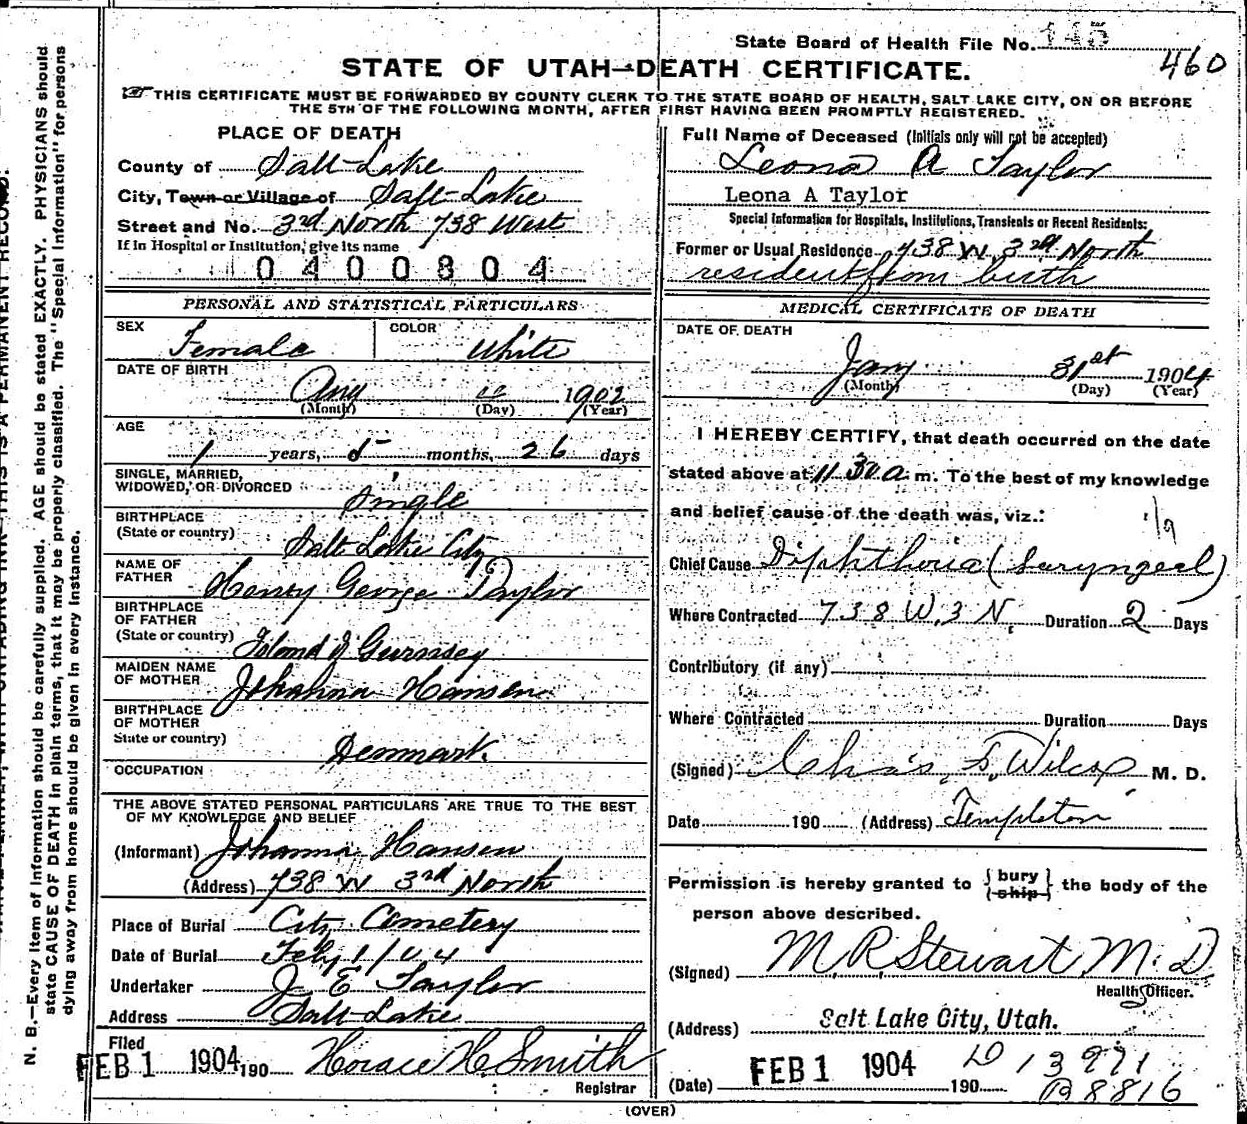 State Board of Health File No. 145
460
STATE OF UTAH—DEATH CERTIFICATE.
THIS CERTIFICATE MUST BE FORWARDED BY COUNTY CLERK TO THE STATE BOARD OF HEALTH, SALT LAKE CITY, ON OR BEFORE
THE 5TH OF THE FOLLOWING MONTH, AFTER FIRST HAVING BEEN PROMPTLY REGISTERED.
PLACE OF DEATH
County of Salt Lake
City, Town or Village of Salt Lake
Street and No. 3rd North 738 West
If in Hospital or Institution, give its name
0400804
Full Name of Deceased (Initials only will not be accepted)
Leona A Taylor
Leona A Taylor
Special Information for Hospitals, Institutions, Transients or Recent Residents:
Former or Usual Residence 738 W. 3rd North
resident from birth
PERSONAL AND STATISTICAL PARTICULARS
SEX Female COLOR White
DATE OF BIRTH
Aug 1902
(Month) (Day) (Year)
AGE
1 years, 5 months, 26 days
SINGLE, MARRIED,
WIDOWED, OR DIVORCED Single
BIRTHPLACE
(State or country) Salt Lake City
NAME OF
FATHER Henry George Taylor
BIRTHPLACE
OF FATHER
(State or country) Island of Gurnsey
MAIDEN NAME
OF MOTHER Johanna Hansen
BIRTHPLACE
OF MOTHER
State or country) Denmark
OCCUPATION
THE ABOVE STATED PERSONAL PARTICULARS ARE TRUE TO THE BEST
OF MY KNOWLEDGE AND BELIEF
(Informant) Johanna Hansen
(Address) 738 W 3rd North
Place of Burial City Cemetery
Date of Burial Feby 1/04
Undertaker J E Taylor
Address Salt Lake
Filed
FEB 1 1904 190 Horace H. Smith
Registrar
MEDICAL CERTIFICATE OF DEATH
DATE OF DEATH
Jany 31st 1904
(Month) (Day) (Year)
I HEREBY CERTIFY, that death occurred on the date
stated above at 11 30 a m. To the best of my knowledge
and belief cause of the death was, viz.:
1/9
Chief Cause Diphtheria (Laryngeal)
Where Contracted 738 W. 3 N. Duration 2 Days
Contributory (if any)
Where Contracted Duration Days
(Signed) Chas. F. Wilcox M. D.
Date 190 (Address) Templeton
Permission is hereby granted to { bury / ship } the body of the
person above described.
(Signed) M. R. Stewart M. D.
Health Officer.
(Address) Salt Lake City, Utah.
(Date) FEB 1 1904 190
D 13971
B 8816
(OVER)
N. B.—Every item of information should be carefully supplied. AGE should be stated EXACTLY. PHYSICIANS should
state CAUSE OF DEATH in plain terms, that it may be properly classified. The "Special Information" for persons
dying away from home should be given in every instance.